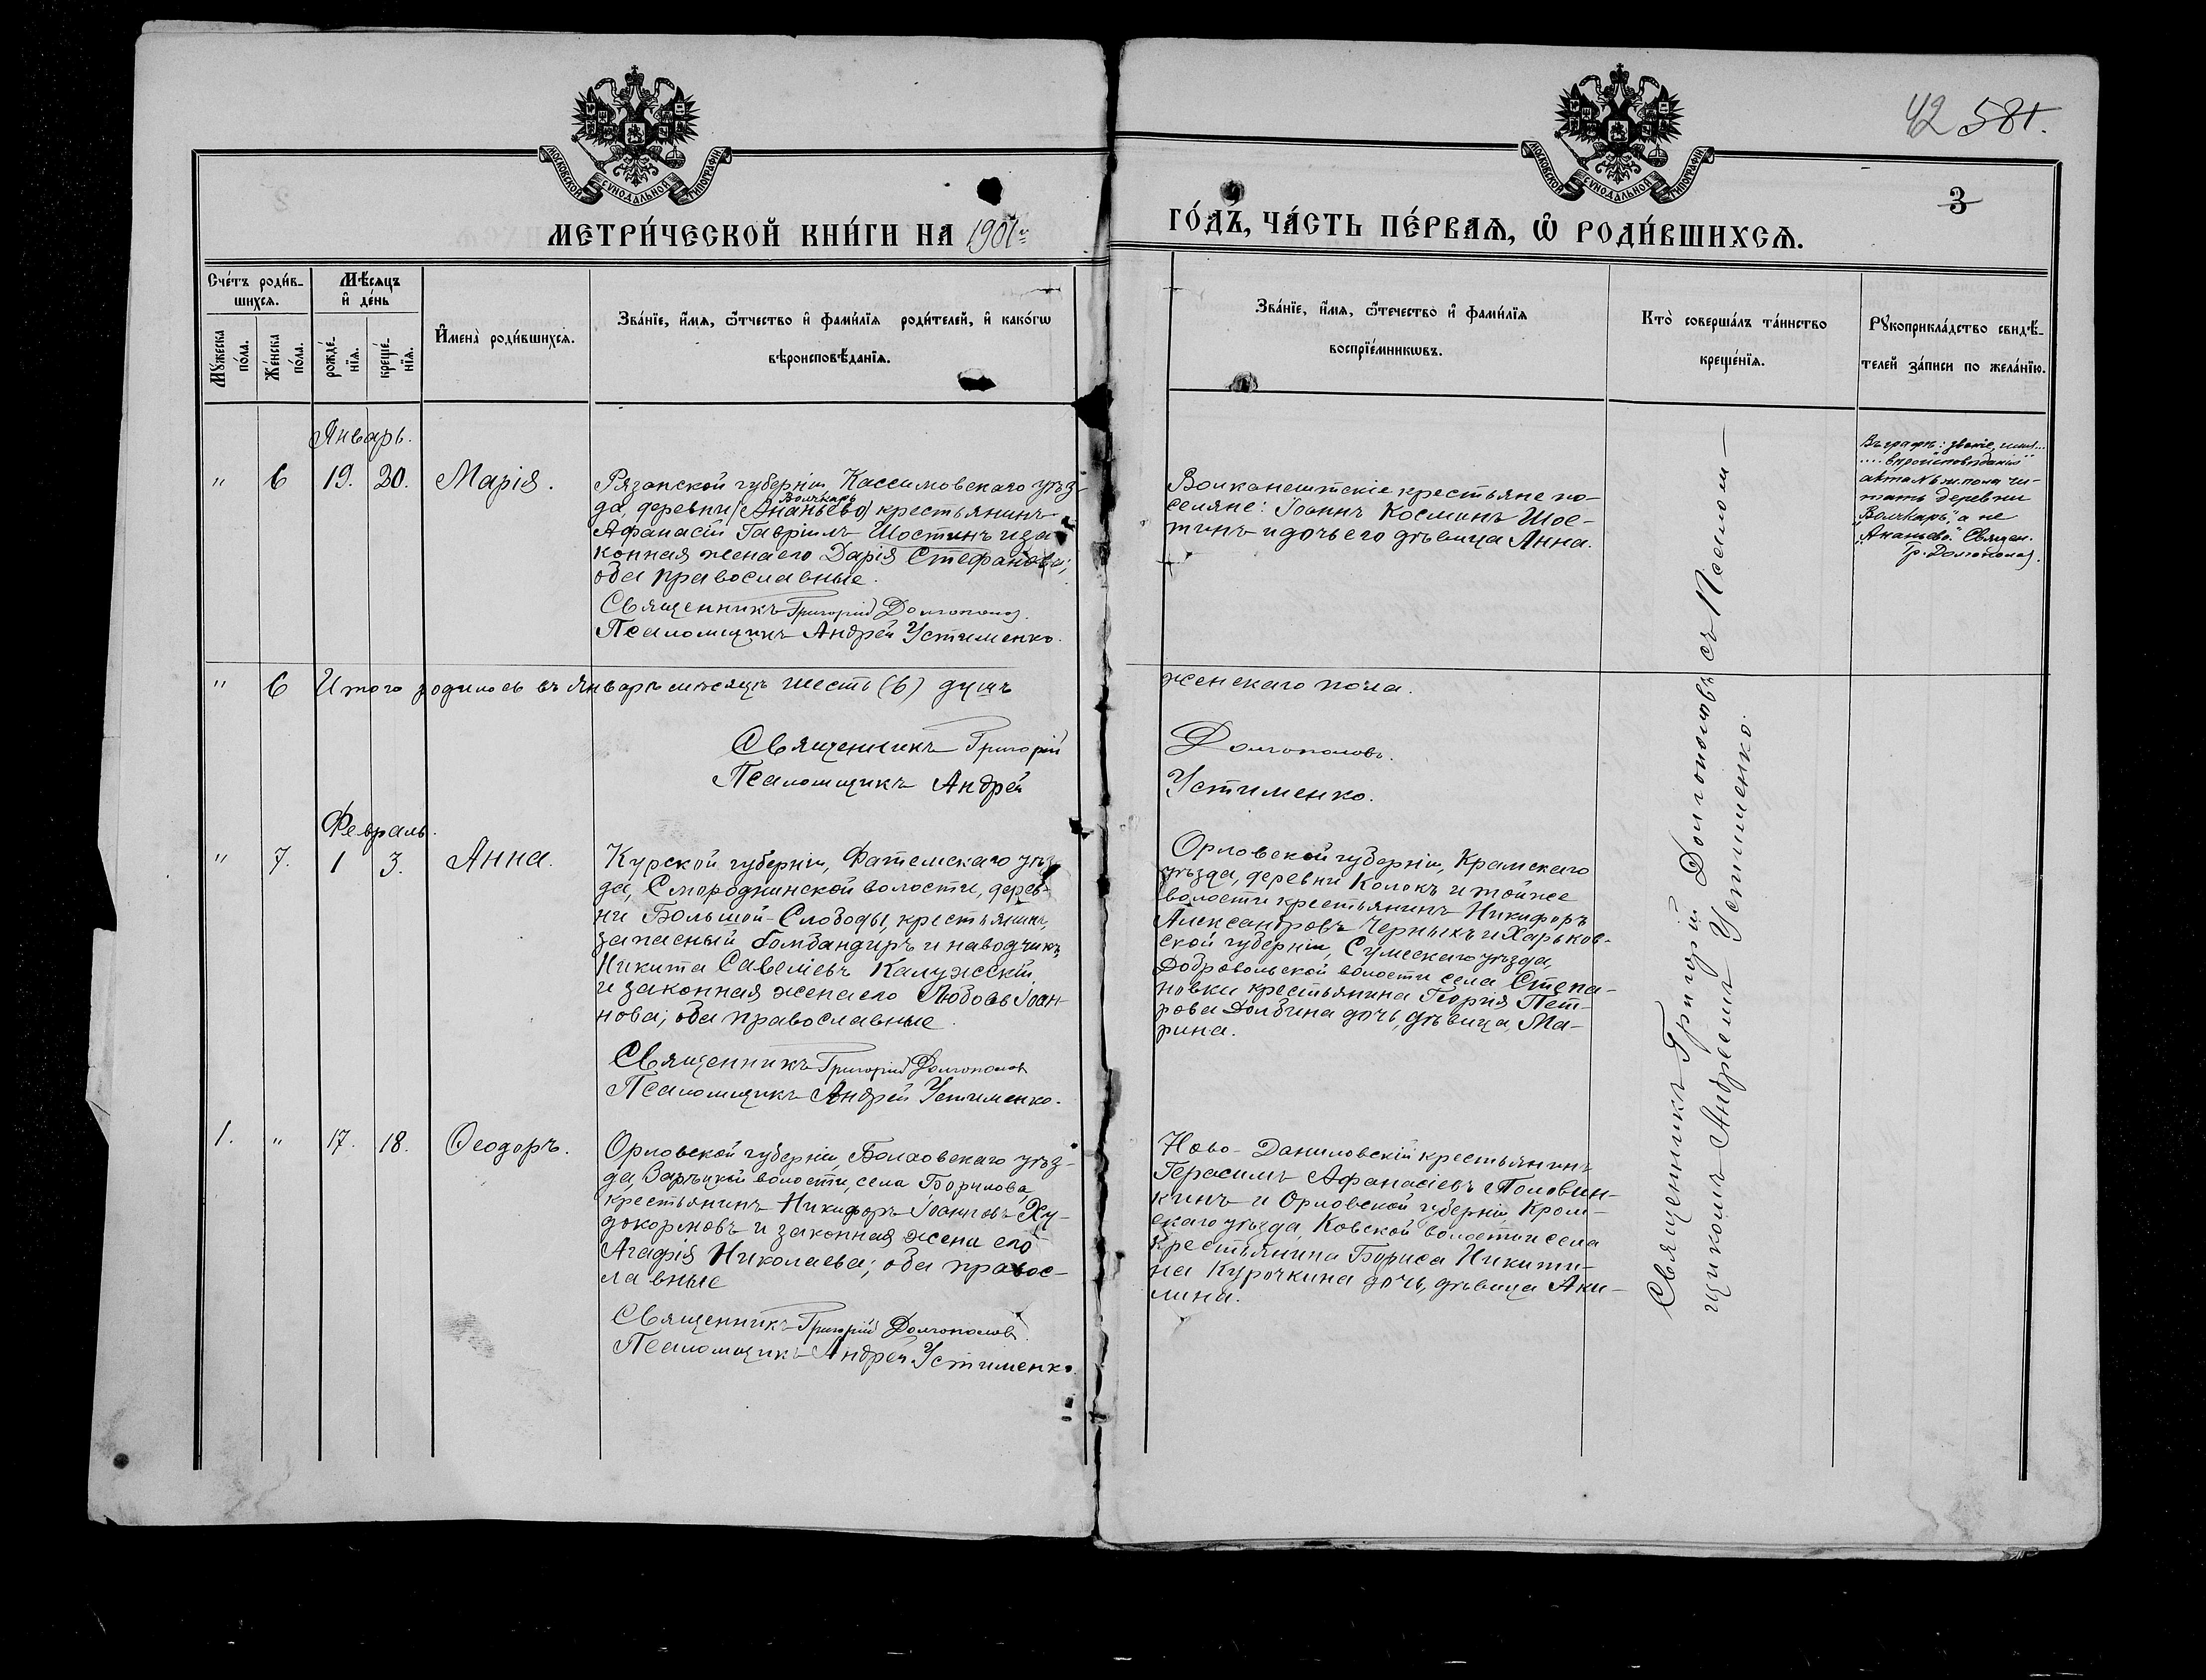 42 581.
3
МОСКОВСКОЙ СѴНОДАЛЬНОЙ ТИПОГРАФІИ
МОСКОВСКОЙ СѴНОДАЛЬНОЙ ТИПОГРАФІИ
МЕТРИ́ЧЕСКОЙ КНИ́ГИ НА 1901й ГО́ДЪ, ЧА́СТЬ ПЕ́РВАѦ, Ѡ҆ РОДИ́ВШИХСѦ.
Сче́тъ роди́в-
шихсѧ.
Мꙋ́жеска по́ла.
Же́нска по́ла.
Мѣ́сѧцъ
и҆ де́нь
рожде́-
нїѧ.
креще́-
нїѧ.
И҆мена̀ роди́вшихсѧ.
Зва́нїе, и҆́мѧ, ѻ҆́тчество и҆ фами́лїѧ роди́телей, и҆ како́гѡ
вѣроисповѣ́данїѧ.
Зва́нїе, и҆́мѧ, ѻ҆те́чество и҆ фами́лїѧ
воспрїе́мникѡвъ.
Кто̀ соверша́лъ та́инство
креще́нїѧ.
Рꙋкоприкла́дство свидѣ́-
телей за́писи по жела́нїю.
Январь.
" 6 19. 20. Марія.
Рязанской губерніи, Кассимовскаго уѣз-
Волчкарь
да, деревни (Ананьево) крестьянинъ
Афанасій Гавріилъ Шостинъ и за-
конная жена его Дарія Стефанова;
оба православные.
Священникъ Григорій Долгополов
Псаломщикъ Андрей Устименко.
Волканештскіе крестьяне по-
селяне: Іоаннъ Косминъ Шос-
тинъ и дочь его дѣвица Анна.
Въ графѣ: званіе, имя...
.... вѣроисповѣданія"
акта № 6 ж. пола чи-
тать деревни
"Волчкарь", а не
"Ананьево". Священ.
Гр. Долгополов.
" 6 Итого родилось въ январѣ мѣсяцѣ шесть (6) душъ женскаго пола.
Священникъ Григорій Долгополовъ.
Псаломщикъ Андрей Устименко.
Февраль.
" 7. 1 3. Анна.
Курской губерніи, Фатежскаго уѣз-
да, Смородинской волости, дерев-
ни Большой-Слободы, крестьянинъ,
запасный бомбандиръ и наводчикъ
Никита Савеліевъ Калужскій
и законная жена его Любовь Іоан-
нова; оба православные.
Священникъ Григорій Долгополов
Псаломщикъ Андрей Устименко.
Орловской губерніи, Крамскаго
уѣзда, деревни Колокъ и тойже
волости крестьянинъ Никифоръ
Александровъ Черныхъ и Харьков-
ской губерніи, Сумскаго уѣзда,
Добровольской волости села Степа-
новки крестьянина Георгія Пет-
рова Долбина дочь, дѣвица, Ма-
рина.
1. " 17. 18. Ѳеодоръ.
Орловской губерніи, Болховскаго уѣз-
да, Зарѣцкой волости, села Борилова,
крестьянинъ Никифоръ Іоанновъ Ху-
докормовъ и законная жена его
Агафія Николаева; оба правос-
лавные
Священникъ Григорій Долгополовъ.
Псаломщикъ Андрей Устименко.
Ново-Даниловскій крестьянинъ
Герасимъ Афанасіевъ Половин-
кинъ и Орловской губерніи, Кром-
скаго уѣзда, Ковской волости села
крестьянина Бориса Никити-
на Курочкина дочь, дѣвица Аки-
лина.
Священникъ Григорій Долгополовъ съ Псалом-
щикомъ Андреемъ Устименко.